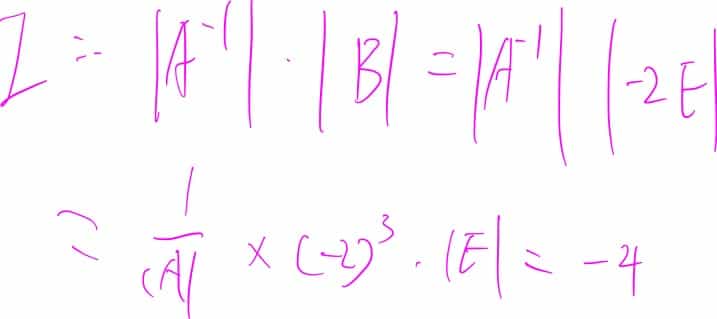 I = |A⁻¹| · |B| = |A⁻¹| |-2E|
= 1/|A| × (-2)³ · |E| = -4